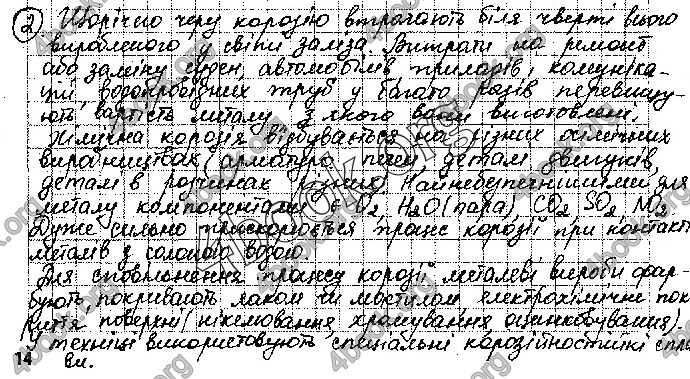 2) Щорічно через корозію втрачають біля чверті всього
виробленого у світі заліза. Витрати на ремонт
або заміну суден, автомобілів, приладів, комуніка-
цій, водопровідних труб у багато разів перевищу-
ють вартість металу, з якого вони виготовлені.
Хімічна корозія відбувається на різних хімічних
виробництвах (арматура печей, деталі двигунів,
деталі в розчинах). Найнебезпечнішими для
металу компонентами є O2, H2O (пара), CO2, SO2, NO2.
Дуже сильно прискорюється процес корозії при контакті
металів з солоною водою.
Для сповільнення процесу корозії металеві вироби фар-
бують, покривають лаком чи мастилом, електрохімічне пок-
риття поверхні (нікелювання, хромування, оцинковування)
У техніці використовують спеціальні корозійностійкі спла
14 ви.
4book.org